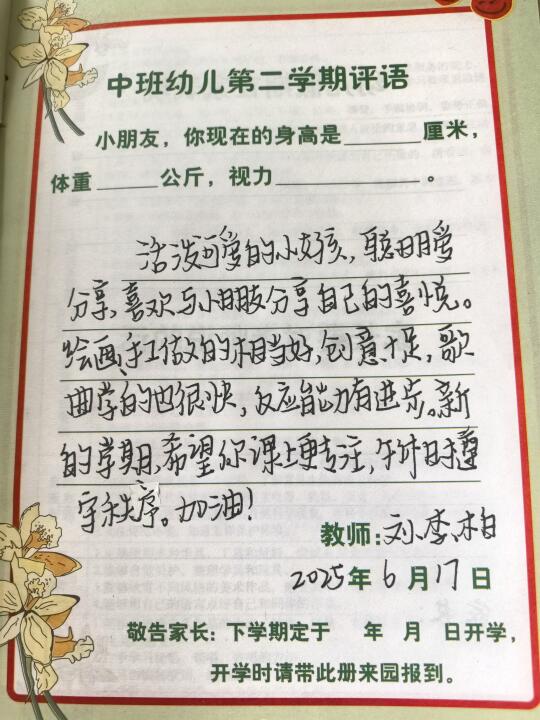 中班幼儿第二学期评语
小朋友，你现在的身高是______厘米，
体重______公斤，视力______________。
活泼可爱的小女孩，聪明爱
分享，喜欢与小朋友分享自己的喜悦。
绘画、手工做的相当好，创意十足，歌
曲学的也很快，反应能力有进步。新
的学期，希望你课上更专注，午休时遵
守秩序。加油！
教师：刘李柏
2025年6月17日
敬告家长：下学期定于 年 月 日开学，
开学时请带此册来园报到。